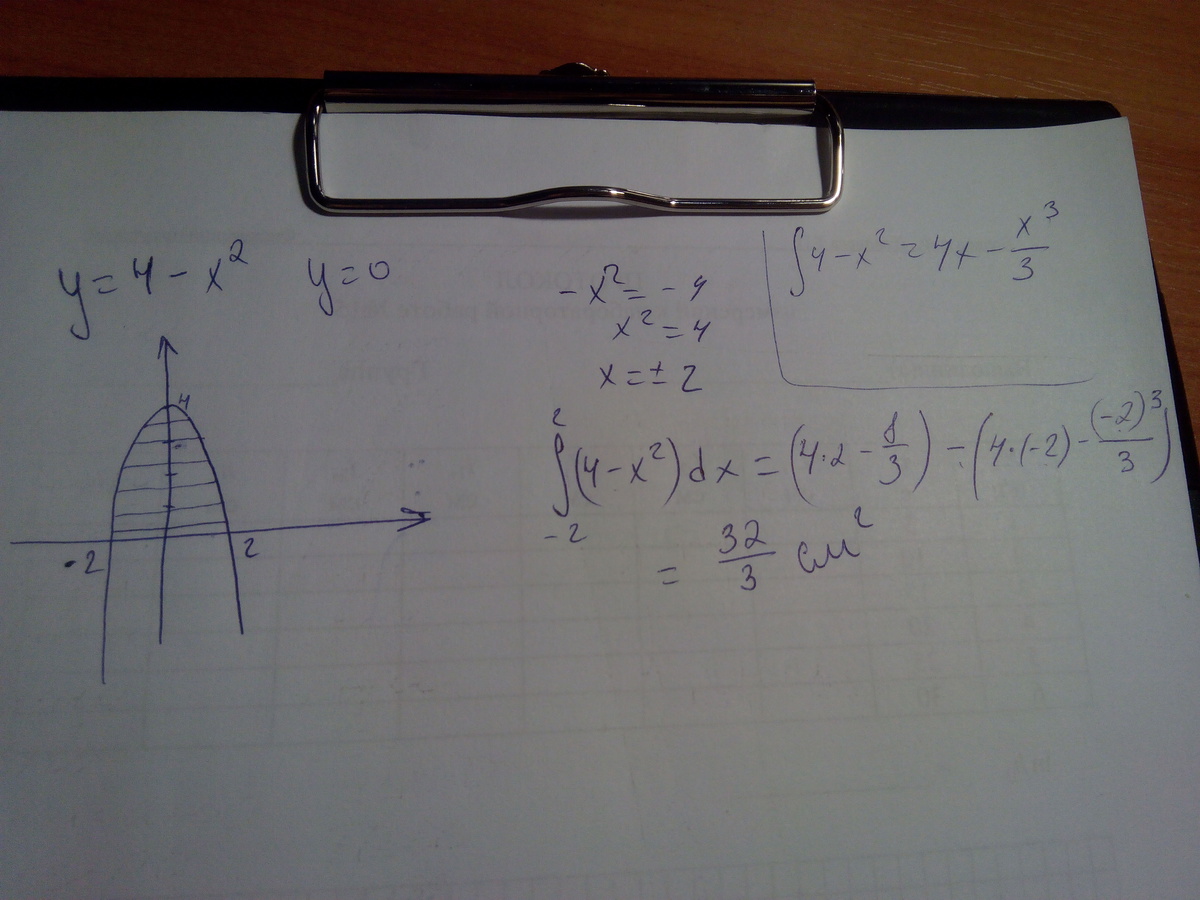 y = 4 - x² y = 0
-x² = -4
x² = 4
x = ± 2
∫4 - x² = 4x - x³/3
4
-2 2
∫₋₂² (4 - x²) dx = (4·2 - 8/3) - (4·(-2) - (-2)³/3)
= 32/3 см²